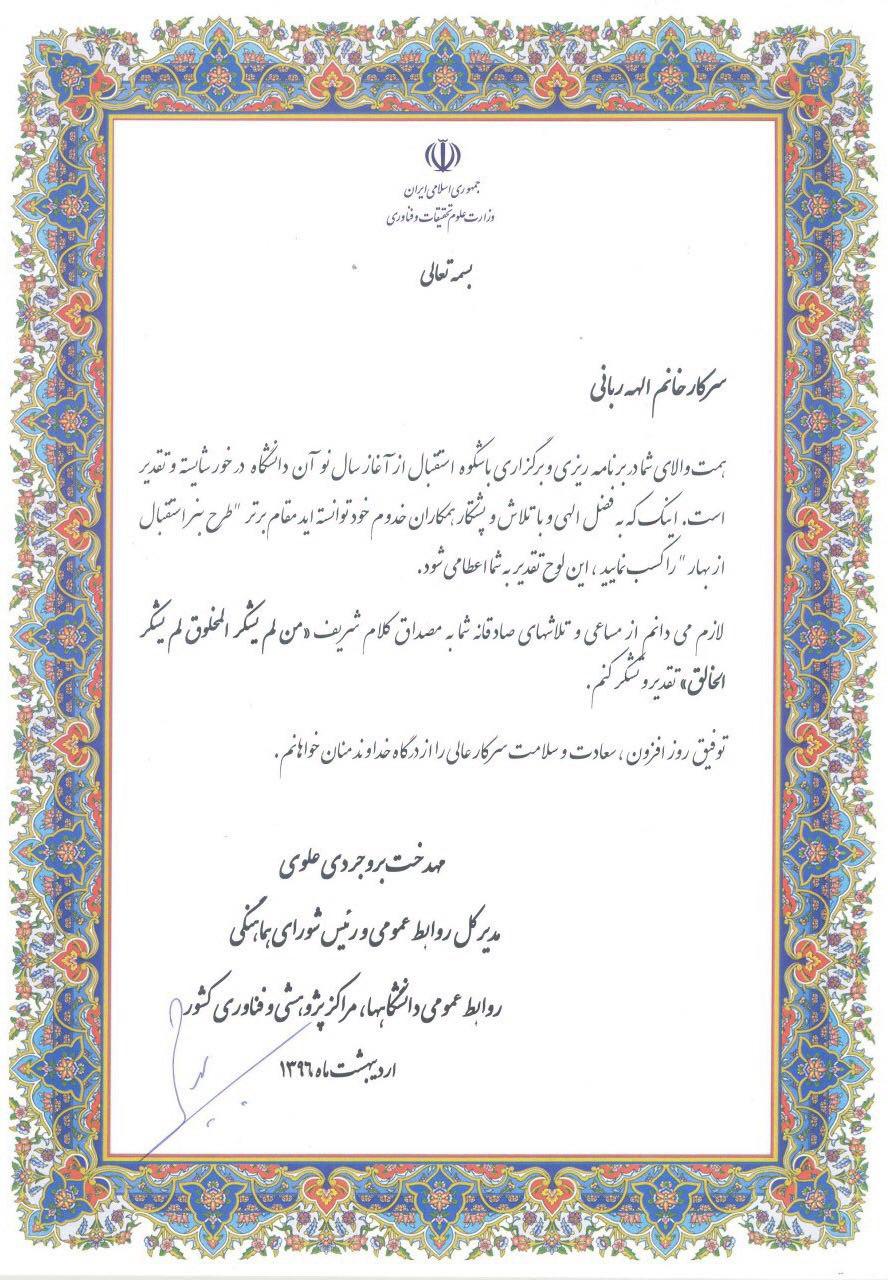 جمهوری اسلامی ایران
وزارت علوم تحقیقات و فناوری
بسمه تعالی
سرکار خانم الهه ربانی
همت والای شما در برنامه ریزی و برگزاری باشکوه استقبال از آغاز سال نو آن دانشگاه در خور شایسته و تقدیر
است. اینک که به فضل الهی و با تلاش و پشتکار همکاران خدوم خود توانسته اید مقام برتر "طرح بنر استقبال
از بهار" را کسب نمایید ، این لوح تقدیر به شما اعطا می شود.
لازم می دانم از مساعی و تلاشهای صادقانه شما به مصداق کلام شریف «من لم یشکر المخلوق لم یشکر
الخالق» تقدیر و تشکر کنم.
توفیق روز افزون ، سعادت و سلامت سرکار عالی را از درگاه خداوند منان خواهانم.
مهدخت بروجردی علوی
مدیر کل روابط عمومی و رئیس شورای هماهنگی
روابط عمومی دانشگاهها، مراکز پژوهشی و فناوری کشور
اردیبهشت ماه ۱۳۹۶